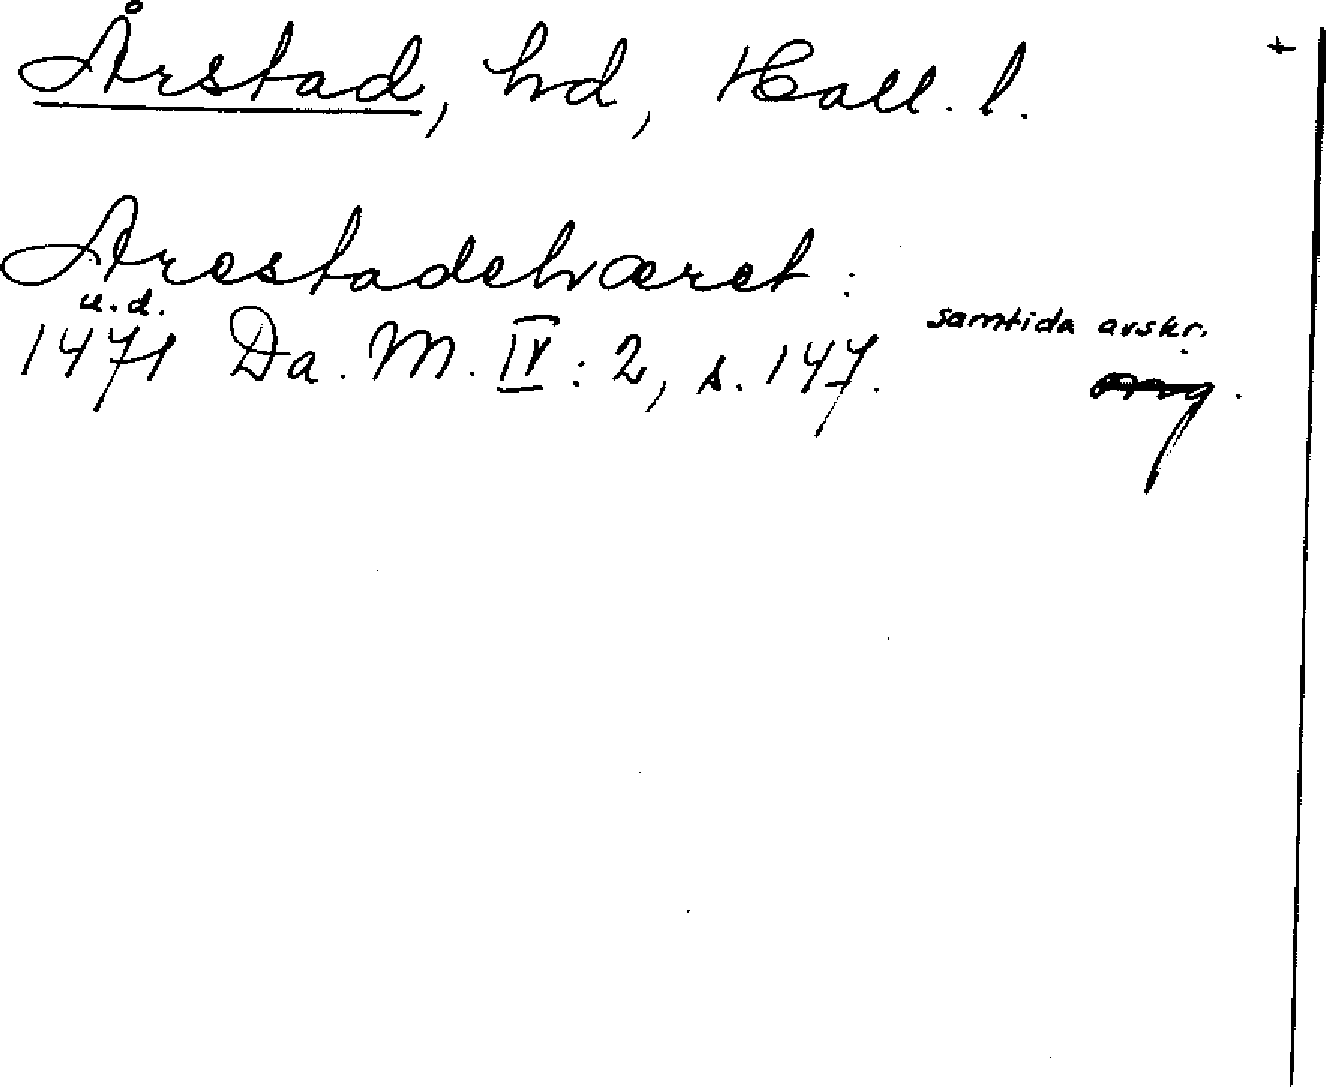 Årstad, hd, Hall. l. +
Arestadehæret:
u.d.
samtida avskr.
1471 Da. M. IV: 2, s. 147. orig.